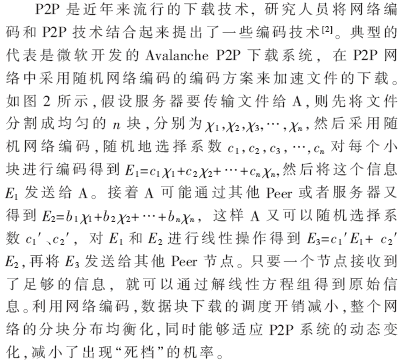 P2P 是近年来流行的下载技术，研究人员将网络编
码和 P2P 技术结合起来提出了一些编码技术[2]。典型的
代表是微软开发的 Avalanche P2P 下载系统，在 P2P 网
络中采用随机网络编码的编码方案来加速文件的下载。
如图 2 所示，假设服务器要传输文件给 A，则先将文件
分割成均匀的 n 块，分别为χ1,χ2,χ3,…,χn，然后采用随
机网络编码，随机地选择系数 c1,c2,c3,…,cn 对每个小
块进行编码得到 E1=c1χ1+c2χ2+…+cnχn，然后将这个信息
E1 发送给 A。接着 A 可能通过其他 Peer 或者服务器又
得到 E2=b1χ1+b2χ2+…+bnχn，这样 A 又可以随机选择系
数 c1′、c2′，对 E1 和 E2 进行线性操作得到 E3=c1′E1+ c2′
E2，再将 E3 发送给其他 Peer 节点。只要一个节点接收到
了足够的信息，就可以通过解线性方程组得到原始信
息。利用网络编码，数据块下载的调度开销减小，整个网
络的分块分布均衡化，同时能够适应 P2P 系统的动态变
化，减小了出现“死档”的机率。